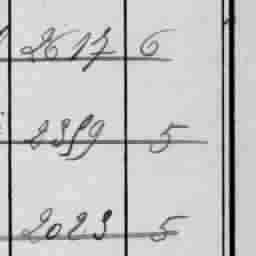 2617 6
2359 5
2023 5